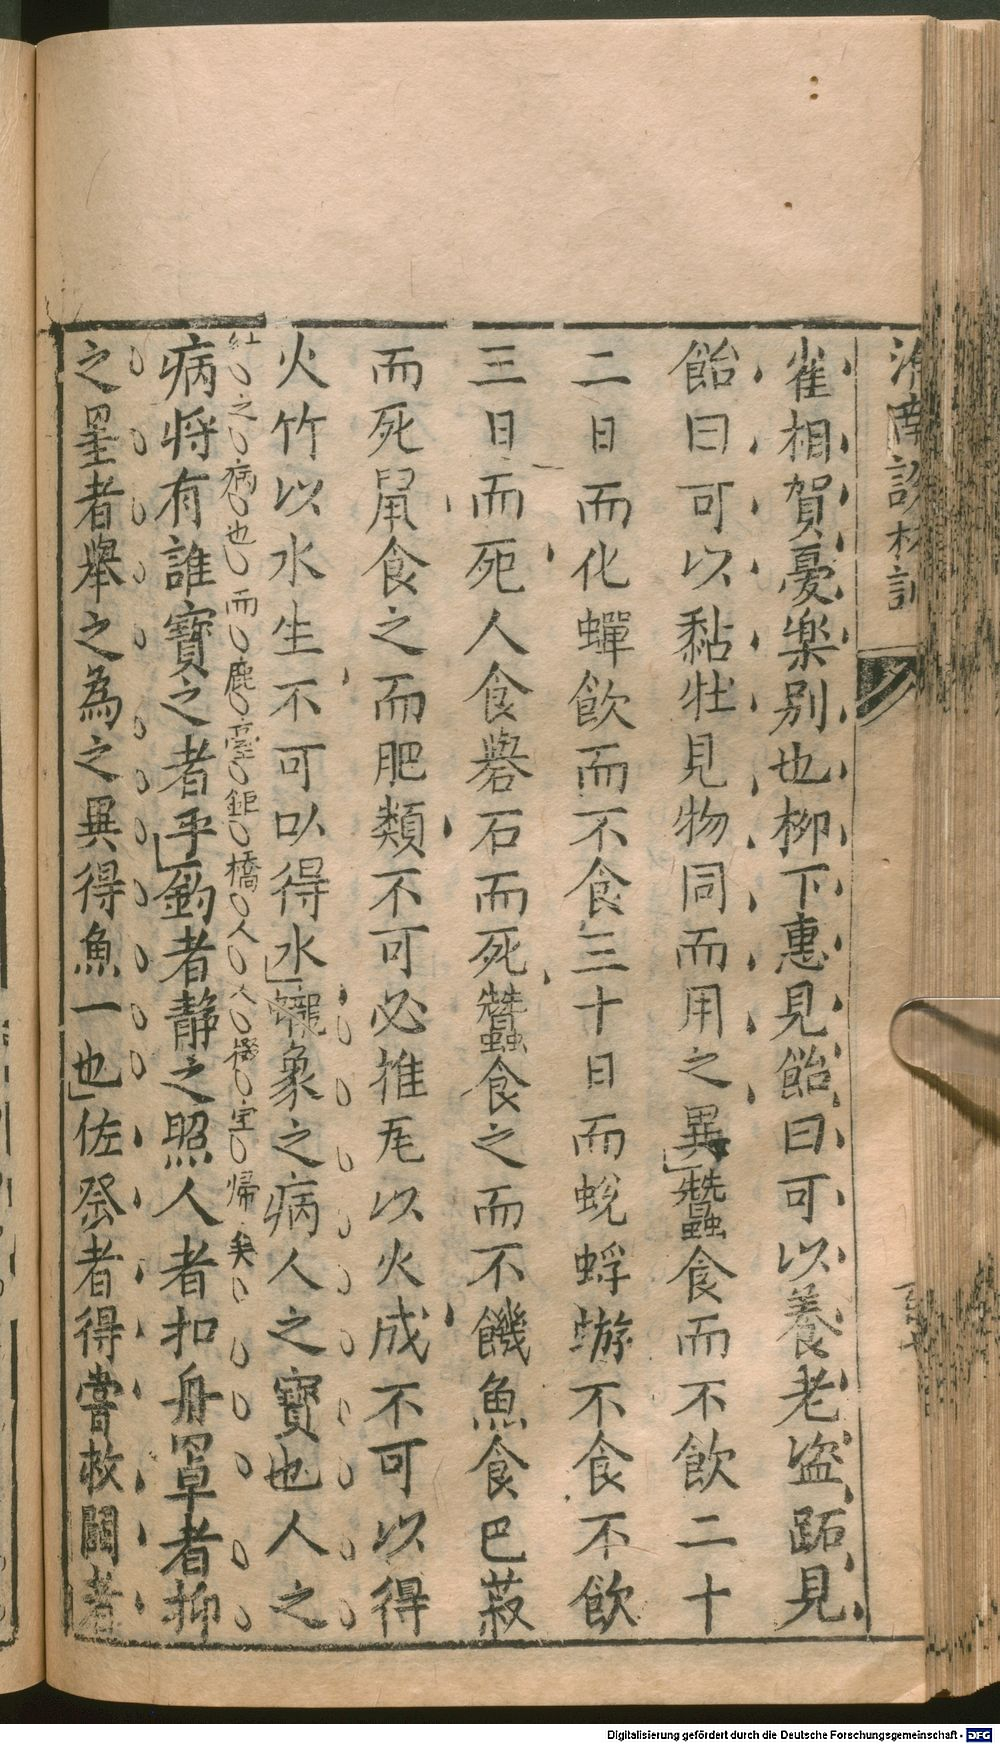 淮南說林訓
雀相賀憂樂别也柳下惠見飴曰可以養老盗跖見
飴曰可以黏牡見物同而用之異蠶食而不飲二十
二日而化蟬飲而不食三十日而蛻蜉蝣不食不飲
三日而死人食礜石而死蠶食之而不饑魚食巴菽
而死䑕食之而肥類不可必推瓦以火成不可以得
火竹以水生不可以得水蠬象之病人之寶也人之
紂之病也而鹿臺鉅橋人
病将有誰寶之者乎釣者静之照人者扣舟罩者抑
之罣者舉之為之異得魚一也佐祭者得嘗救鬪者
Digitalisierung gefördert durch die Deutsche Forschungsgemeinschaft - DFG